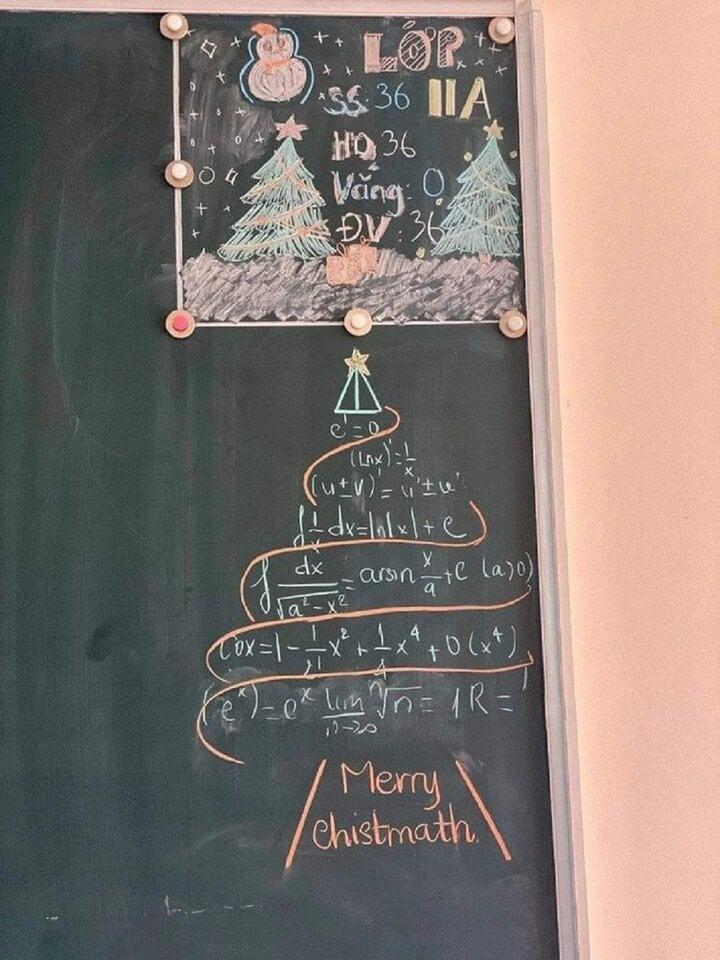 LỚP
SS: 36 11A
HD 36
Vắng: 0
ĐV: 36
c' = 0
(lnx)' = 1/x
(u±v)' = u' ± v'
∫ 1/x dx = ln|x| + c
∫ dx/√(a²-x²) = arsin x/a + c (a>0)
Cox = 1 - 1/2! x² + 1/4 x⁴ + 0(x⁴)
(eˣ) = eˣ lim n→∞ ⁿ√n = 1 R = 1
Merry
Chistmath.